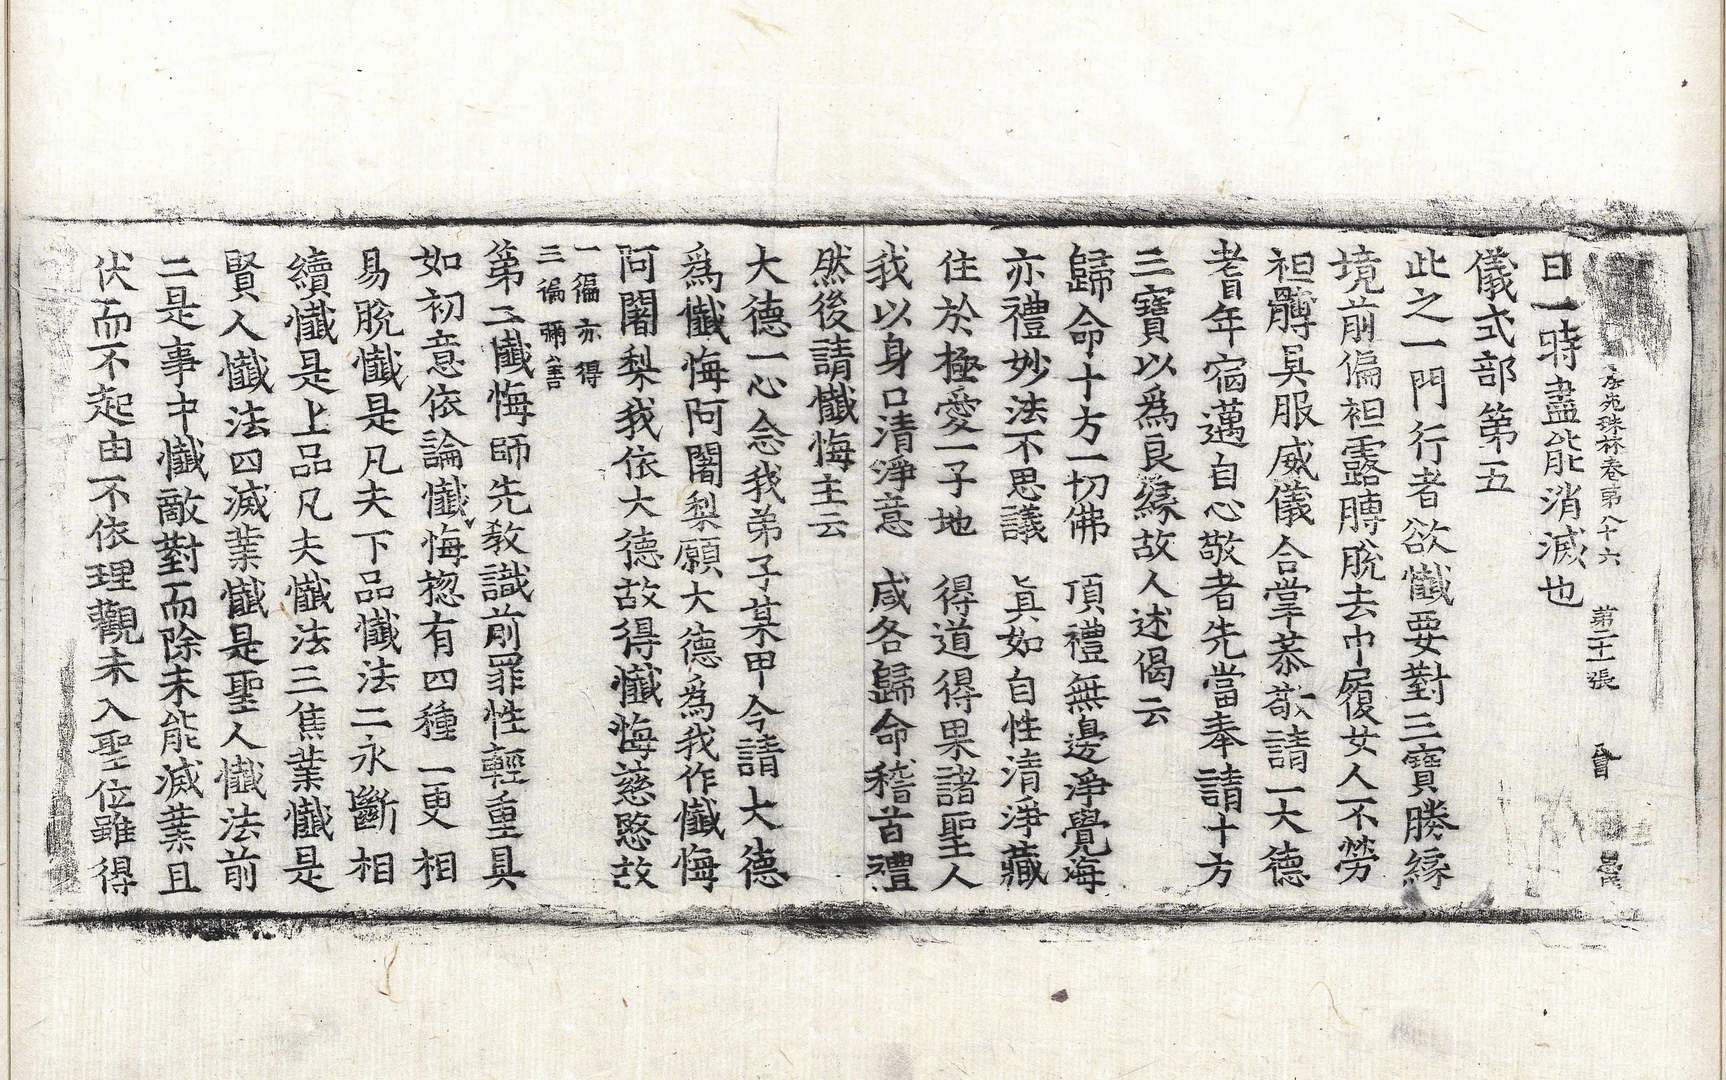 法苑珠林卷第八十六 第二十一張
日一時盡能消滅也
儀式部第五
此之一門行者欲懺要對三寶勝縁
境前偏袒露膊脫去巾履女人不勞
袒髆具服威儀合掌恭敬請一大德
耆年宿邁自心敬者先當奉請十方
三寶以爲良縁故人述偈云
歸命十方一切佛 頂禮無邊淨覺海
亦禮妙法不思議 眞如自性清淨藏
住於極愛一子地 得道得果諸聖人
我以身口清淨意 咸各歸命稽首禮
然後請懺悔主云
大德一心念我弟子某甲今請大德
爲懺悔阿闍梨願大德爲我作懺悔
阿闍梨我依大德故得懺悔慈愍故
一徧亦得
三徧彌善
第二懺悔師先教識前罪性輕重具
如初意依論懺悔揔有四種一更相
易脫懺是凡夫下品懺法二永斷相
續懺是上品凡夫懺法三焦業懺是
賢人懺法四滅業懺是聖人懺法前
二是事中懺敵對而除未能滅業且
伏而不起由不依理觀未入聖位雖得